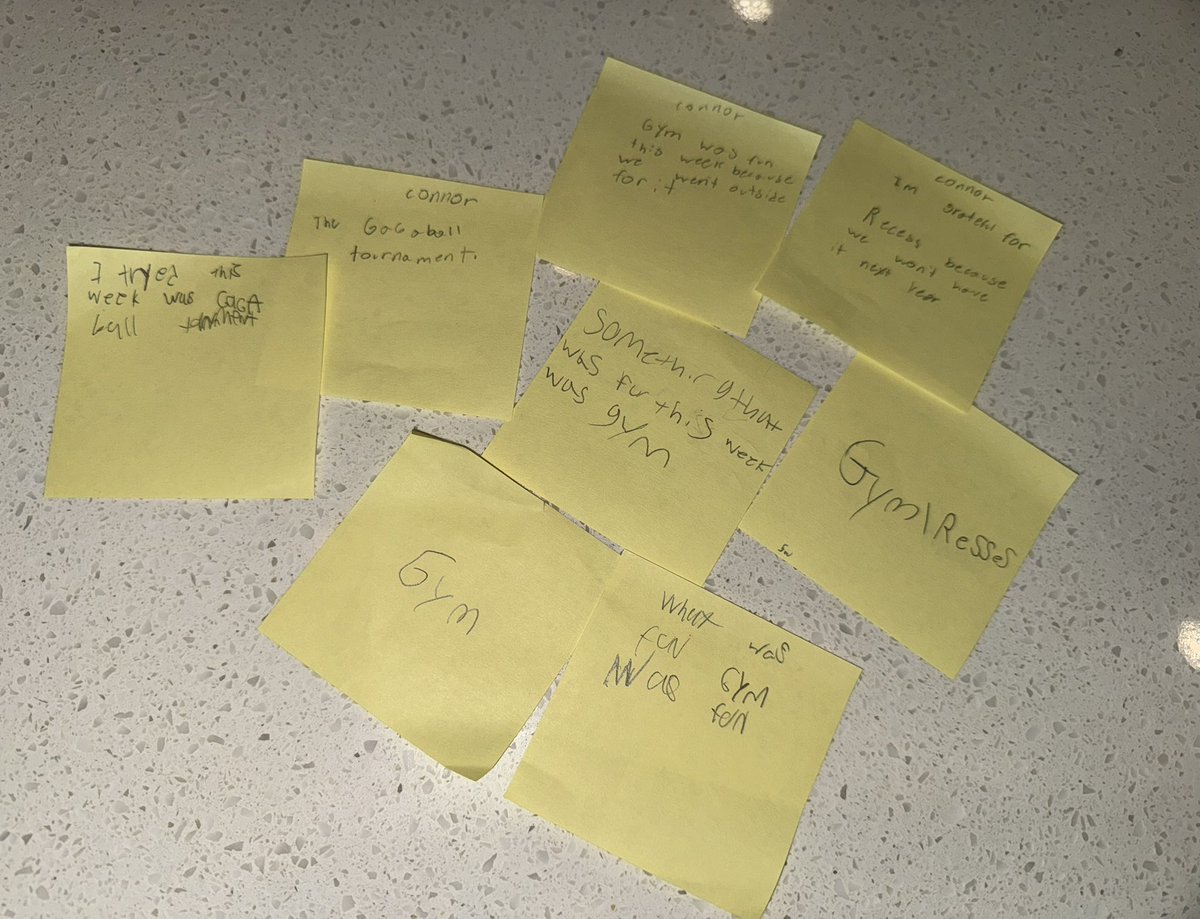 I tryed this
week was GAGA
ball
connor
The GaGaball
tournament.
connor
Gym was fun
this week because
we went outside
for it
connor
Im grateful for
Recess because
we won't have
it next year
Something that
was fun this week
was gym
Gym\Resses
Sw
Gym
What was
fuN GYM
Was fuN